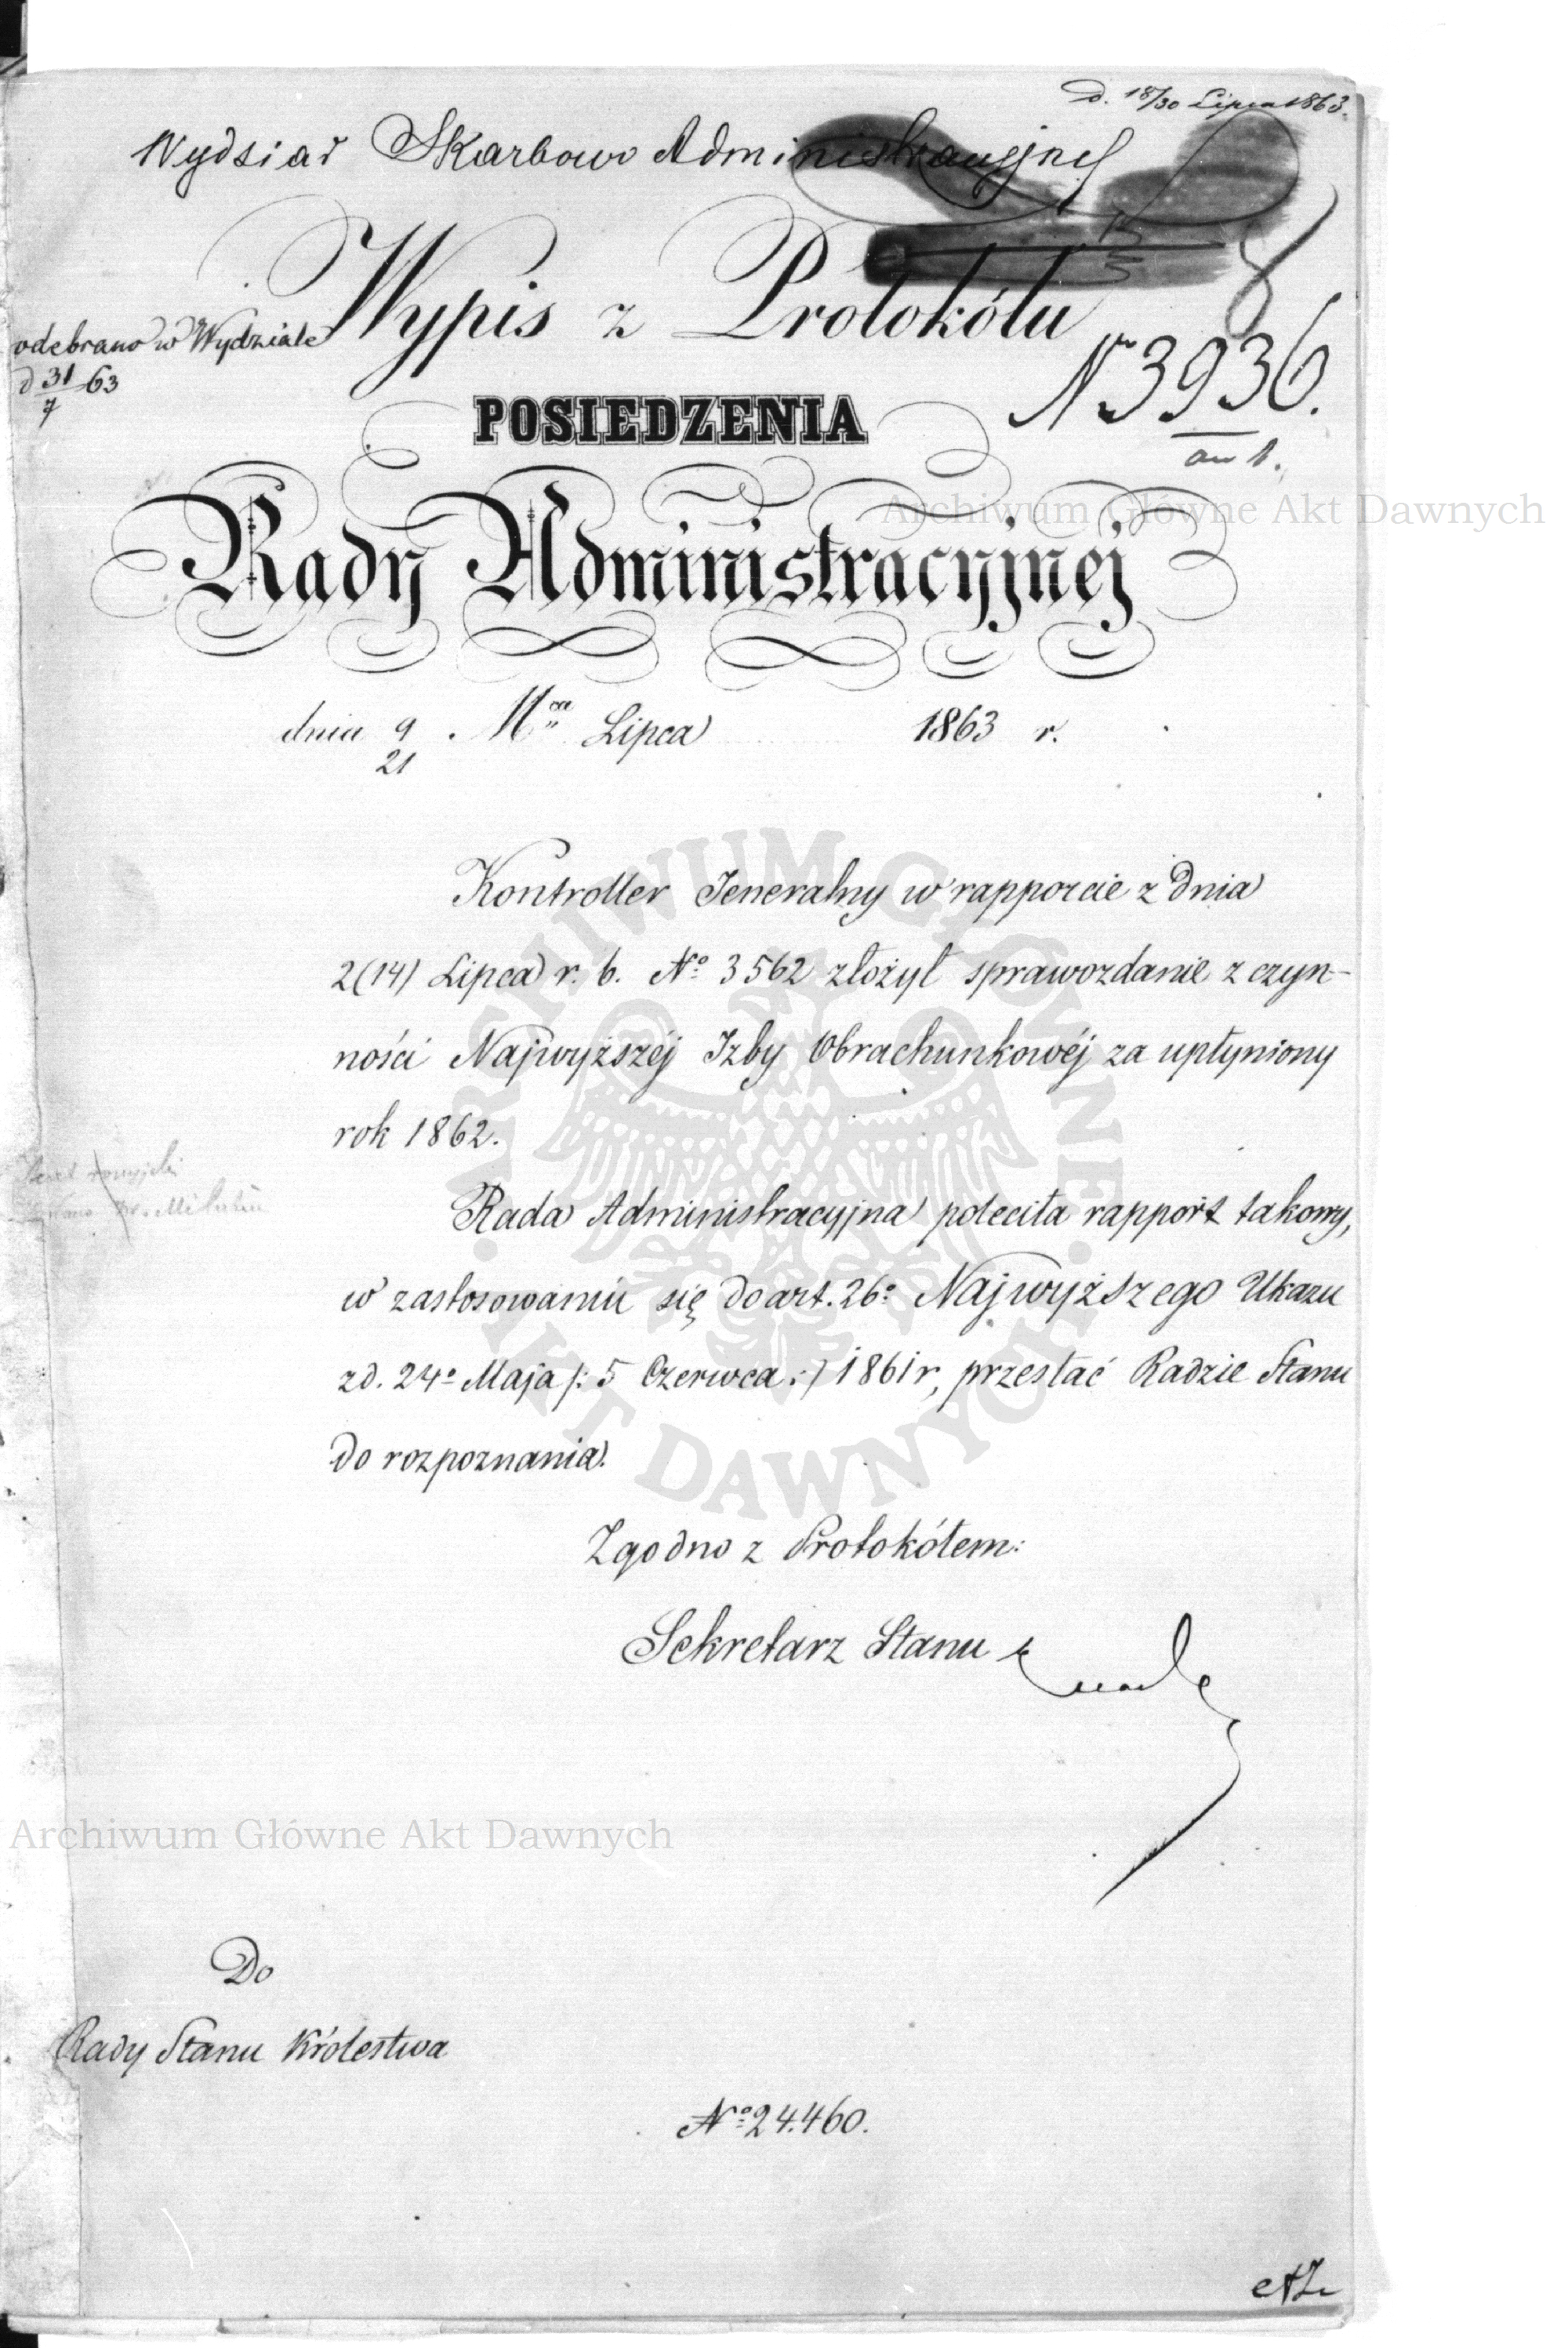 d. 18/30 Lipca 1863.
Wydział Skarbowo Administracyjny
Wypis z Protokółu
odebrano w Wydziale
d 31/7 63
N 3936.
POSIEDZENIA
Archiwum Główne Akt Dawnych
Rady Administracyjnej
dnia 9/21 Mca Lipca 1863 r.
Kontroller Jeneralny w rapporcie z dnia
2(14) Lipca r. b. No 3562 złożył sprawozdanie z czyn-
ności Najwyższéj Izby Obrachunkowéj za upłyniony
rok 1862.
Rada Administracyjna poleciła rapport takowy,
w zastosowaniu się do art. 26o Najwyższego Ukazu
z d. 24o Maja /: 5 Czerwca :/ 1861 r, przesłać Radzie Stanu
do rozpoznania.
ARCHIWUM GŁÓWNE AKT DAWNYCH
Zgodno z Protokółem:
Sekretarz Stanu
Archiwum Główne Akt Dawnych
Do
Rady Stanu Królestwa
No 24.460.